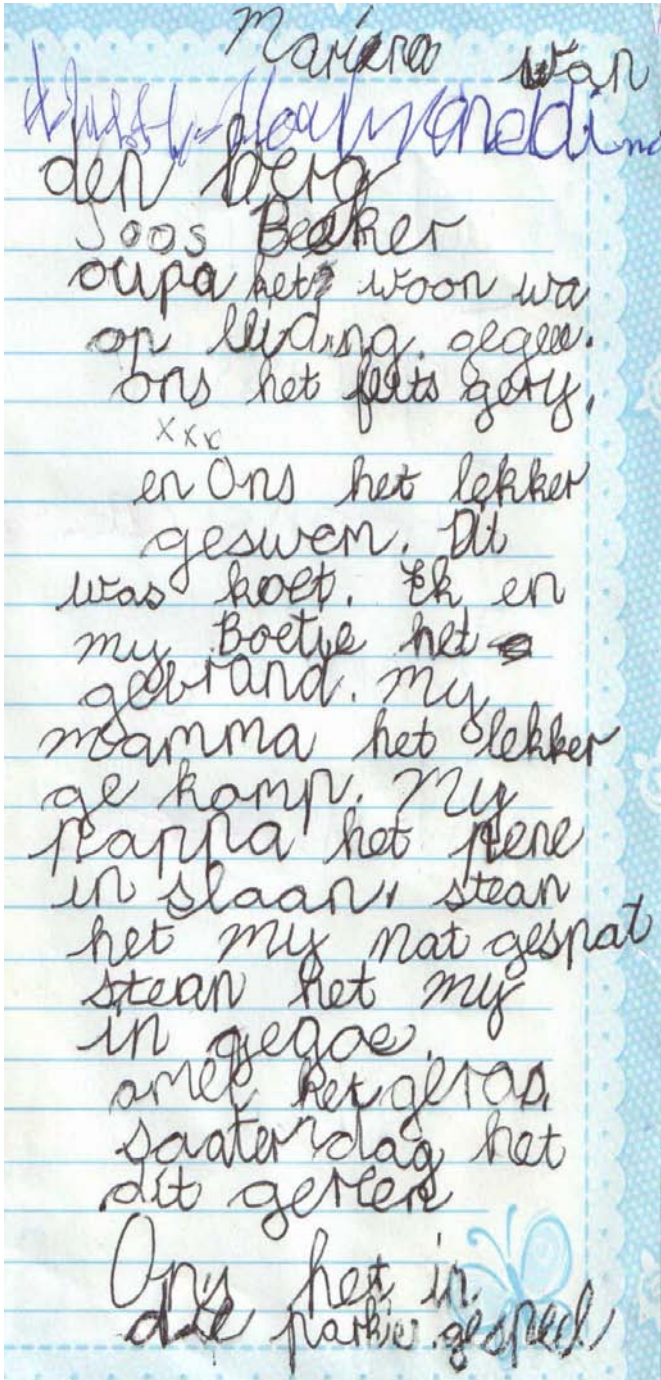 Mariena van
den berg
Joos Beaker
oupa het woon wa
op leiding. gegee.
ons het feits gery.
xxx
en Ons het lekker
geswem. Dit
was koet. Ek en
my Boetje het
gebrand. my
mamma het lekker
ge kamp. My
pappa het pene
in slaan. stean
het my nat gespat
stean het my
in gegoe.
amel het geras.
saaterdag het
dit gerëen
Ons het in
die parkie gespeel